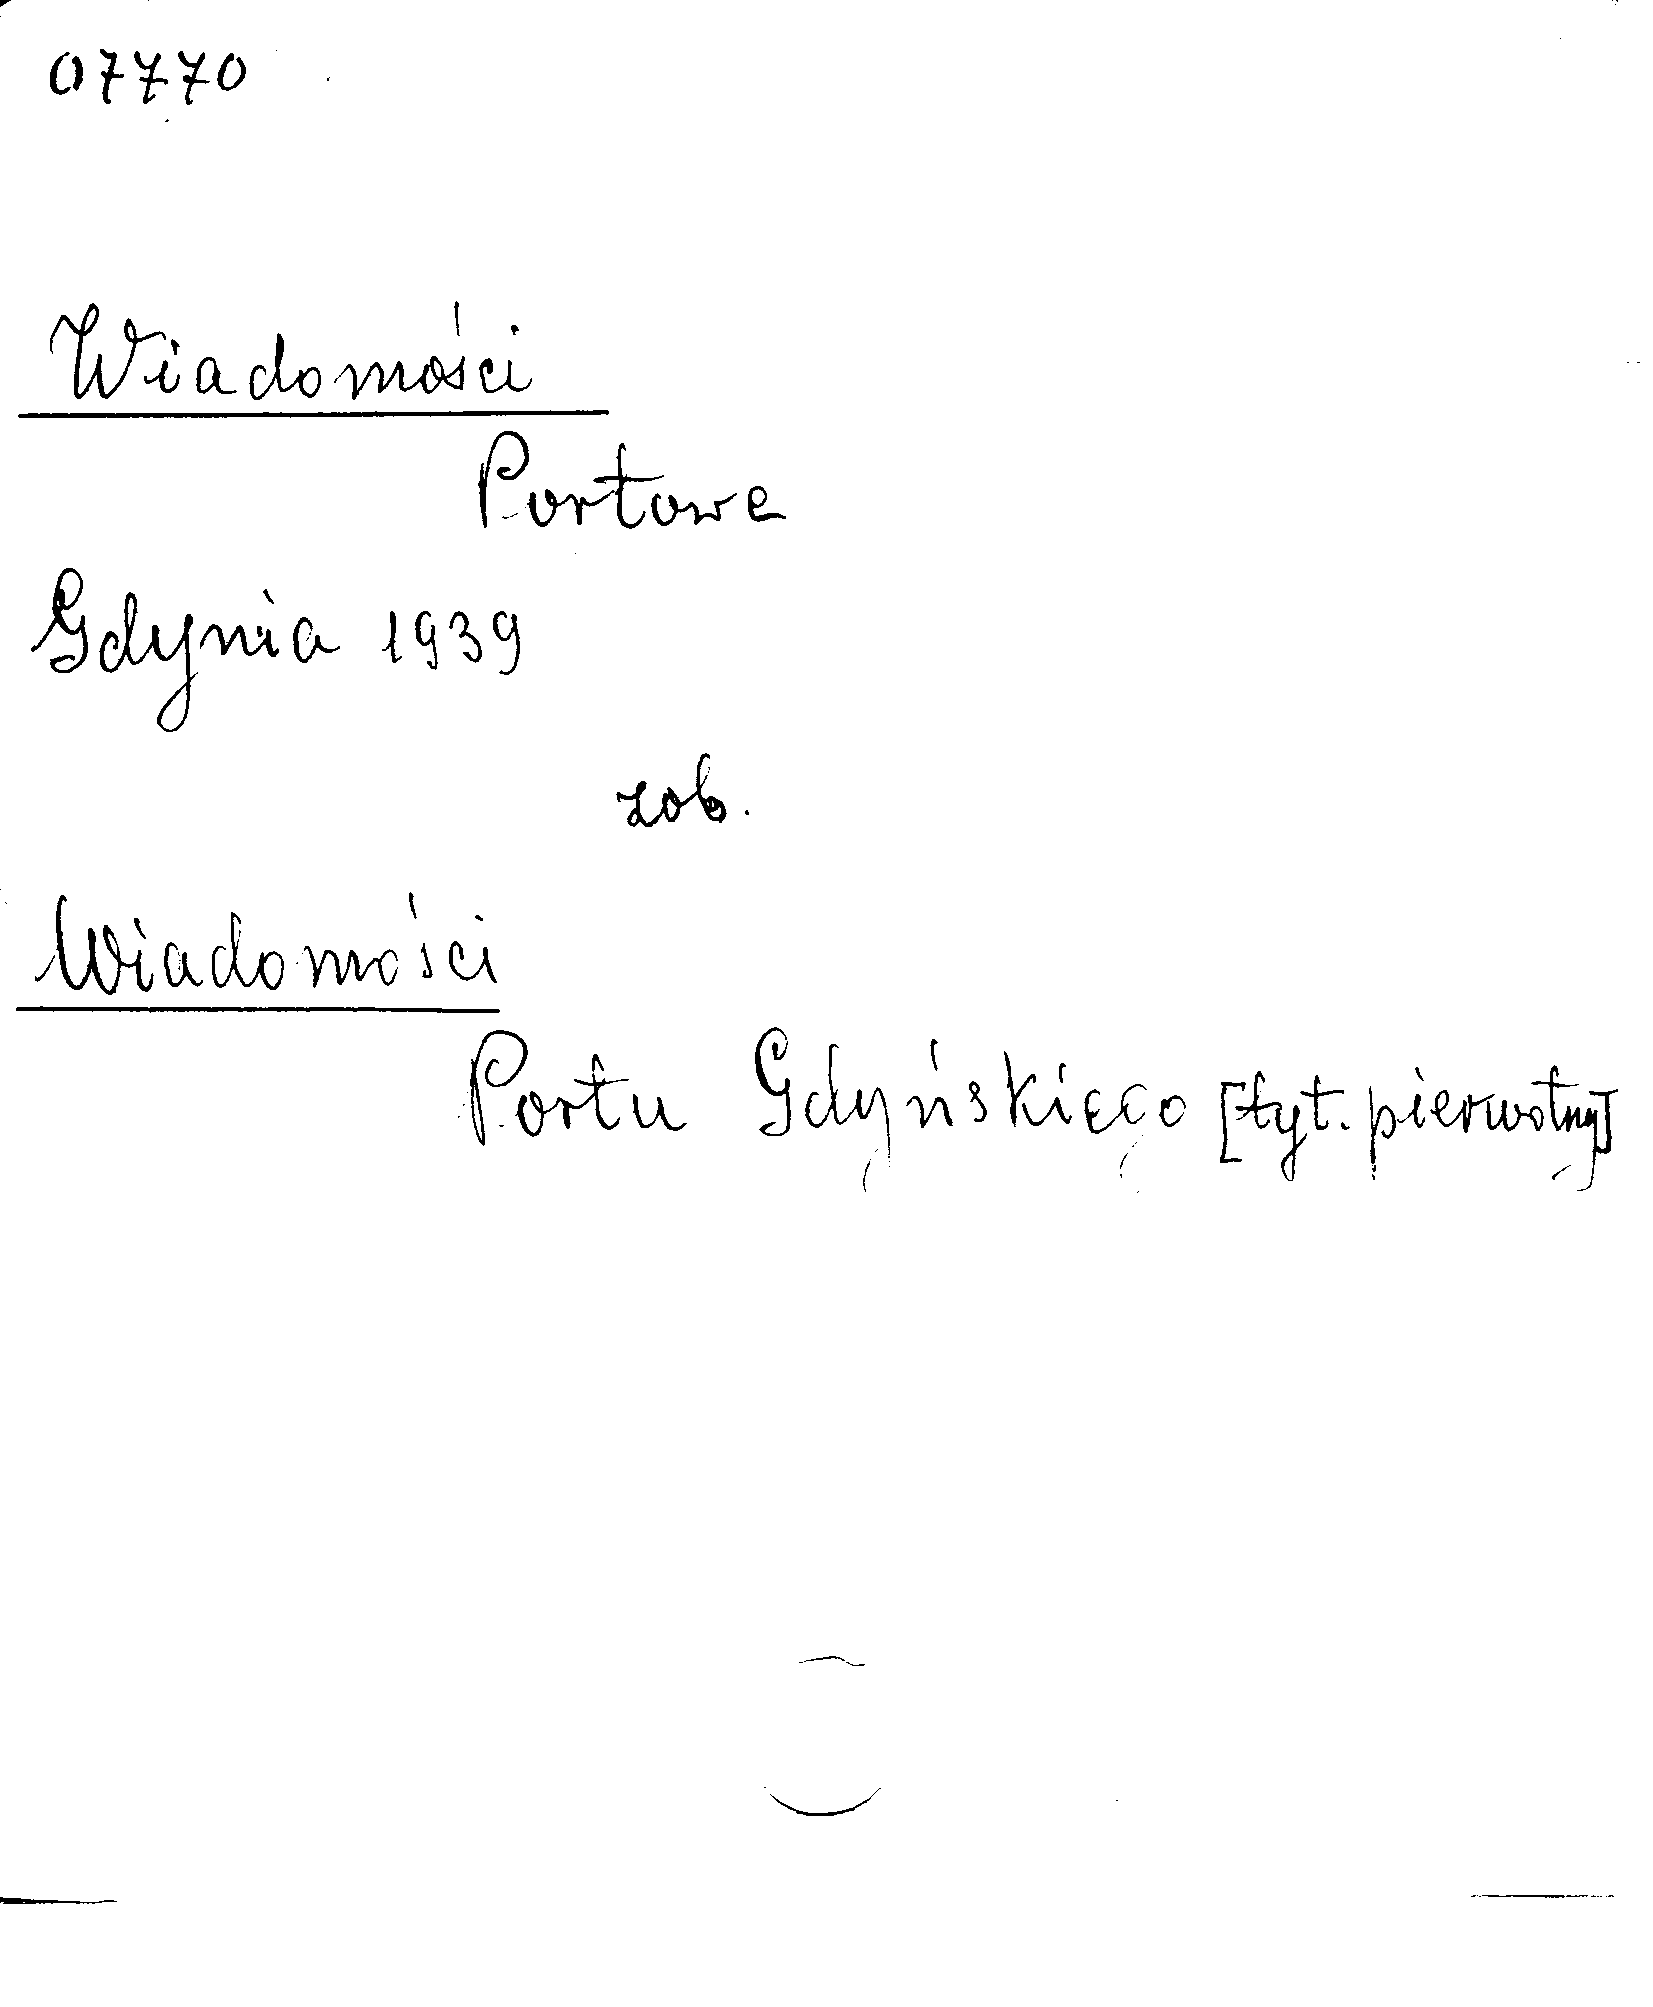 07770
Wiadomości
Portowe
Gdynia 1939
zob.
Wiadomości
Portu Gdyńskiego [tyt. pierwotny]